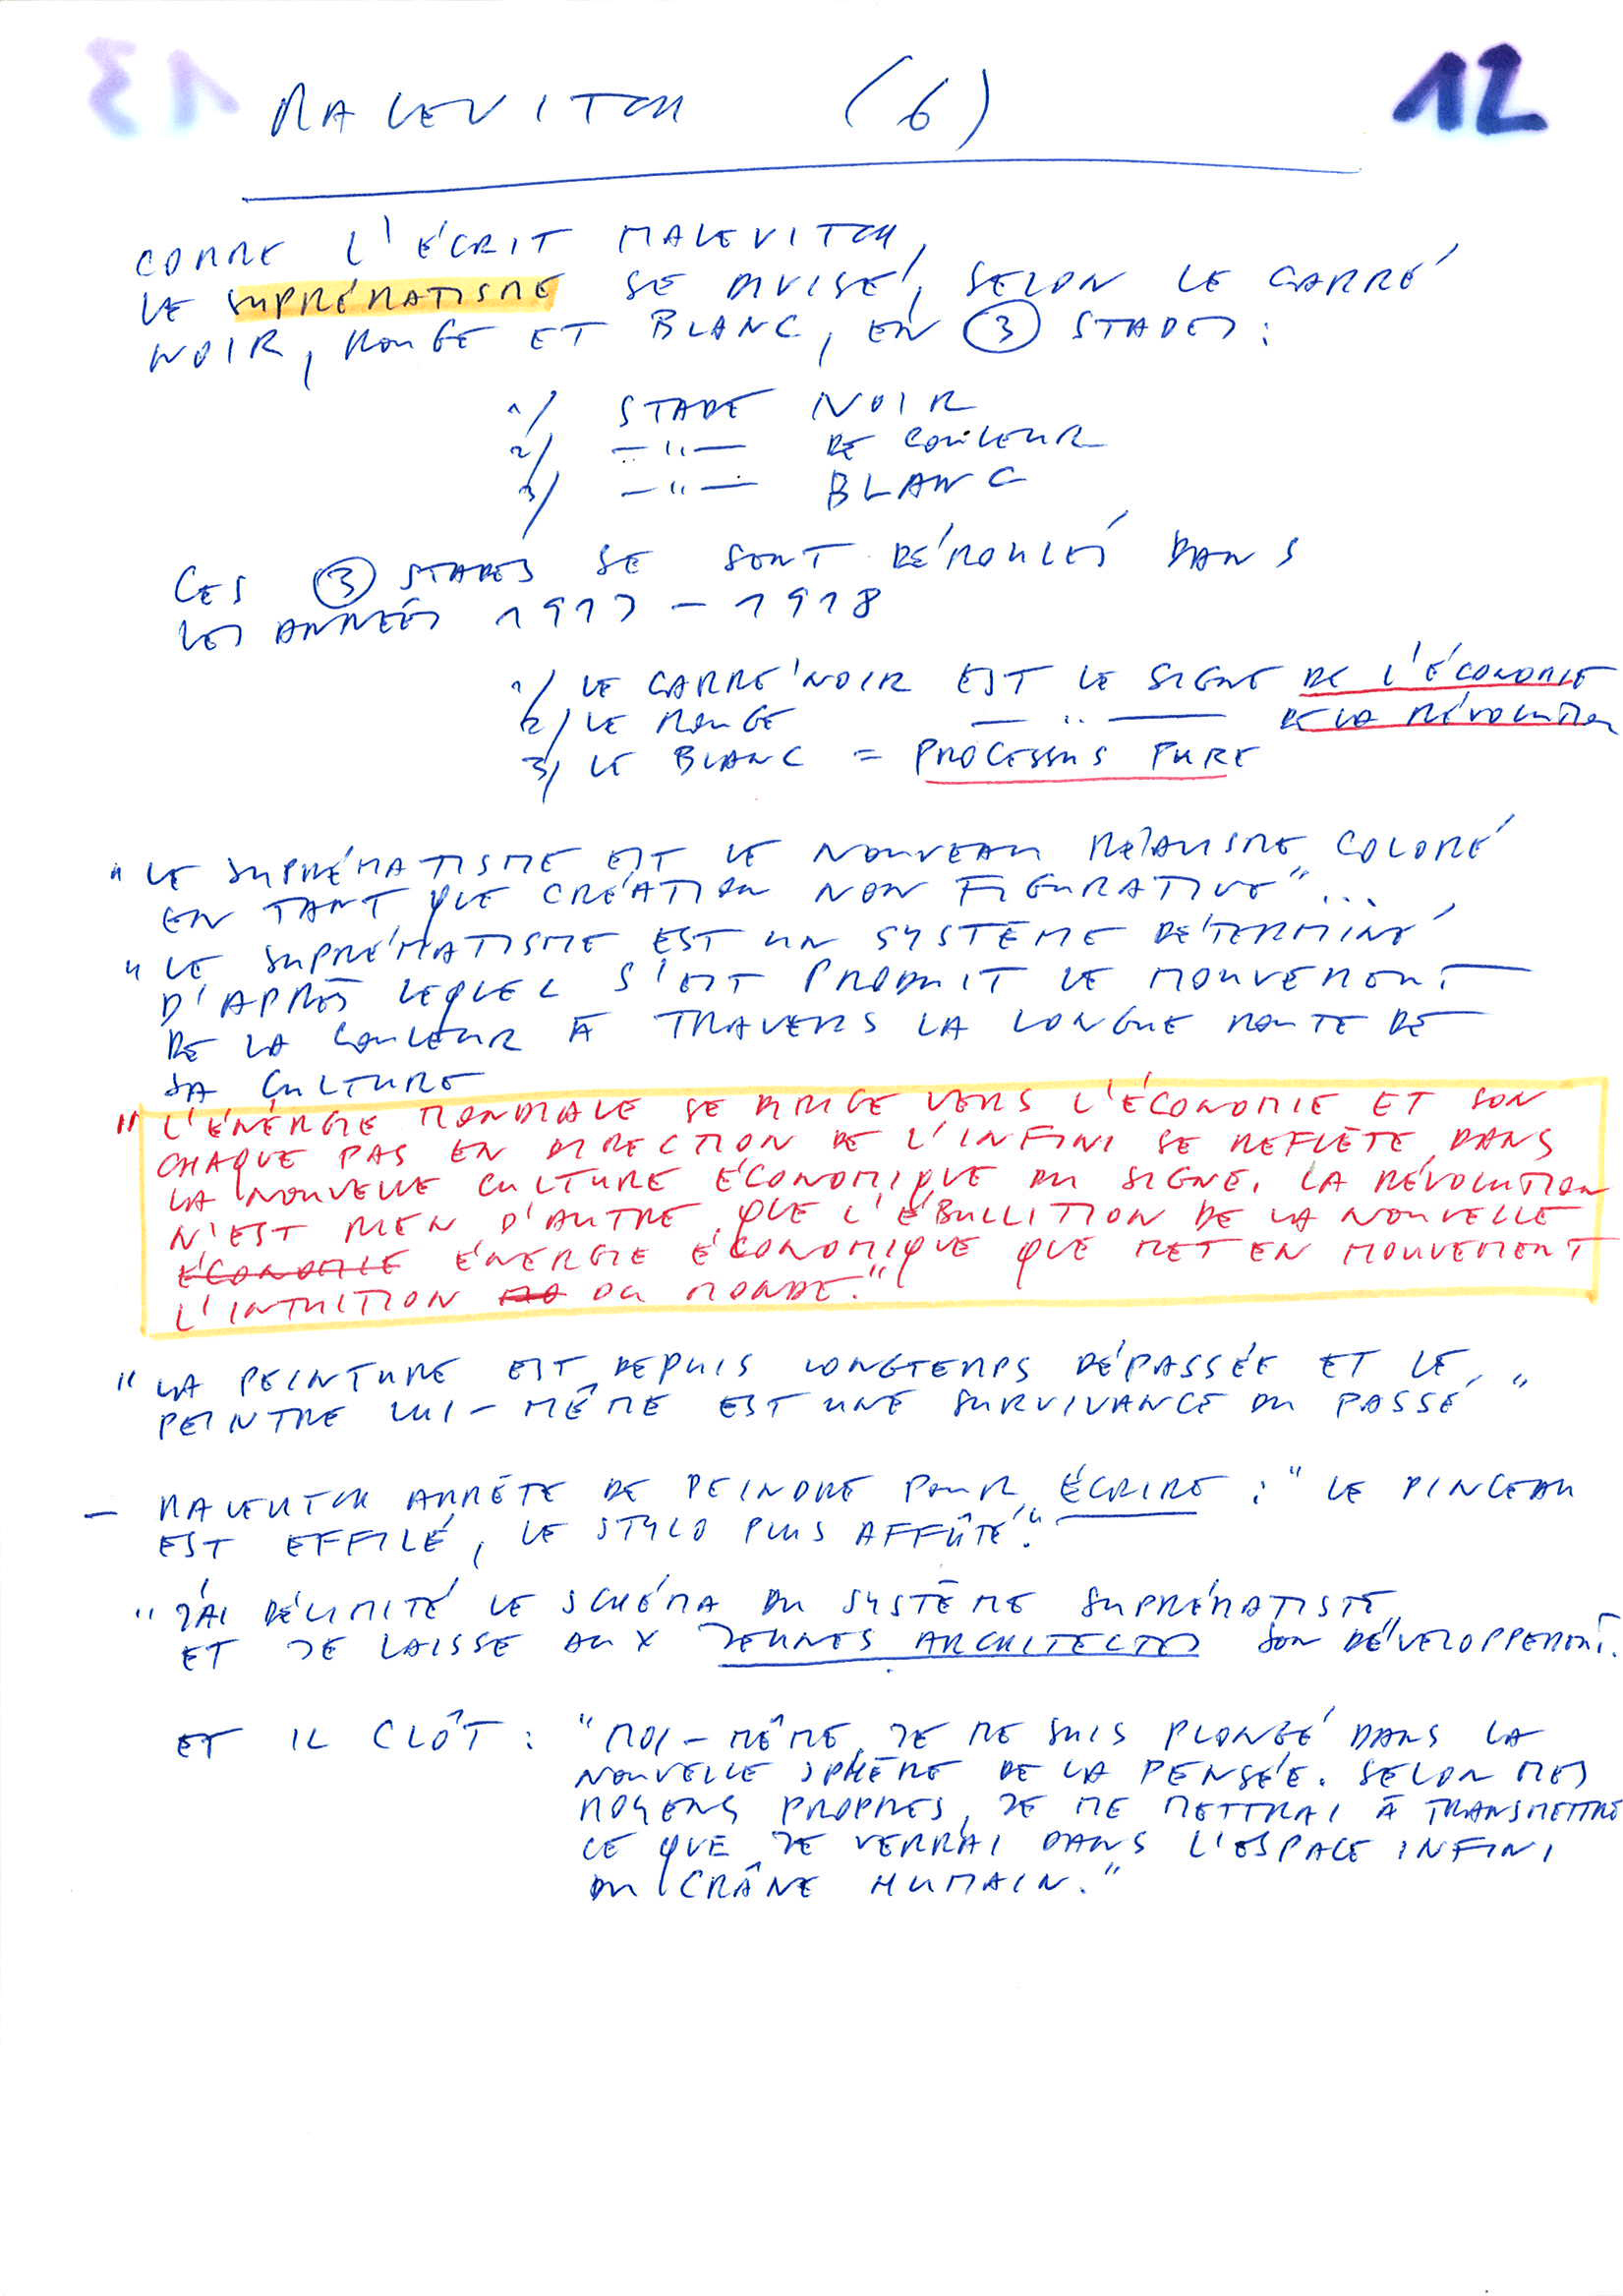 MALEVITCH (6)
12
COMME L'ÉCRIT MALEVITCH,
LE SUPRÉMATISME SE DIVISE, SELON LE CARRÉ
NOIR, ROUGE ET BLANC, EN 3 STADES :
1/ STADE NOIR
2/ —"— DE COULEUR
3/ —"— BLANC
CES 3 STADES SE SONT DÉROULÉS DANS
LES ANNÉES 1913 - 1918
1/ LE CARRÉ NOIR EST LE SIGNE DE L'ÉCONOMIE
2/ LE ROUGE —"— DE LA RÉVOLUTION
3/ LE BLANC = PROCESSUS PURE
"LE SUPRÉMATISME EST LE NOUVEAU RÉALISME COLORÉ
EN TANT QUE CRÉATION NON FIGURATIVE"...
"LE SUPRÉMATISME EST UN SYSTÈME DÉTERMINÉ
D'APRÈS LEQUEL S'EST PRODUIT LE MOUVEMENT
DE LA COULEUR À TRAVERS LA LONGUE ROUTE DE
SA CULTURE
"L'ÉNERGIE MONDIALE SE DIRIGE VERS L'ÉCONOMIE ET SON
CHAQUE PAS EN DIRECTION DE L'INFINI SE REFLÈTE DANS
LA NOUVELLE CULTURE ÉCONOMIQUE DU SIGNE. LA RÉVOLUTION
N'EST RIEN D'AUTRE QUE L'ÉBULLITION DE LA NOUVELLE
ÉCONOMIE ÉNERGIE ÉCONOMIQUE QUE MET EN MOUVEMENT
L'INTUITION DU MONDE."
"LA PEINTURE EST DEPUIS LONGTEMPS DÉPASSÉE ET LE
PEINTRE LUI-MÊME EST UNE SURVIVANCE DU PASSÉ"
— MALEVITCH ARRÊTE DE PEINDRE POUR ÉCRIRE : "LE PINCEAU
EST EFFILÉ, LE STYLO PLUS AFFÛTÉ."
"J'AI DÉLIMITÉ LE SCHÉMA DU SYSTÈME SUPRÉMATISTE
ET JE LAISSE AUX JEUNES ARCHITECTES SON DÉVELOPPEMENT."
ET IL CLÔT : "MOI-MÊME, JE ME SUIS PLONGÉ DANS LA
NOUVELLE SPHÈRE DE LA PENSÉE. SELON MES
MOYENS PROPRES, JE ME METTRAI À TRANSMETTRE
CE QUE JE VERRAI DANS L'ESPACE INFINI
DU CRÂNE HUMAIN."